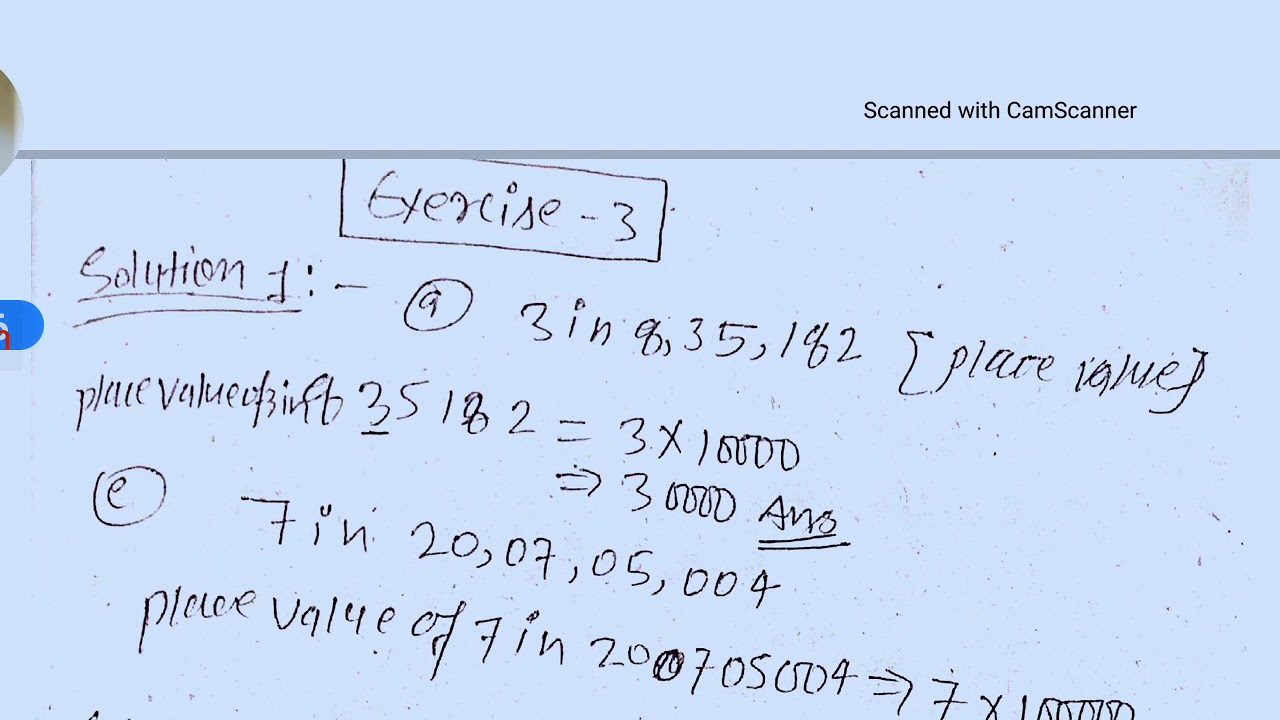 Scanned with CamScanner
Exercise - 3
Solution 1:- (a) 3 in 8,35,182 [place value]
place value of 3 in 8 35182 = 3 × 10000
⇒ 30000 Ans
(e) 7 in 20,07,05,004
place value of 7 in 200705004 ⇒ 7 × 100000